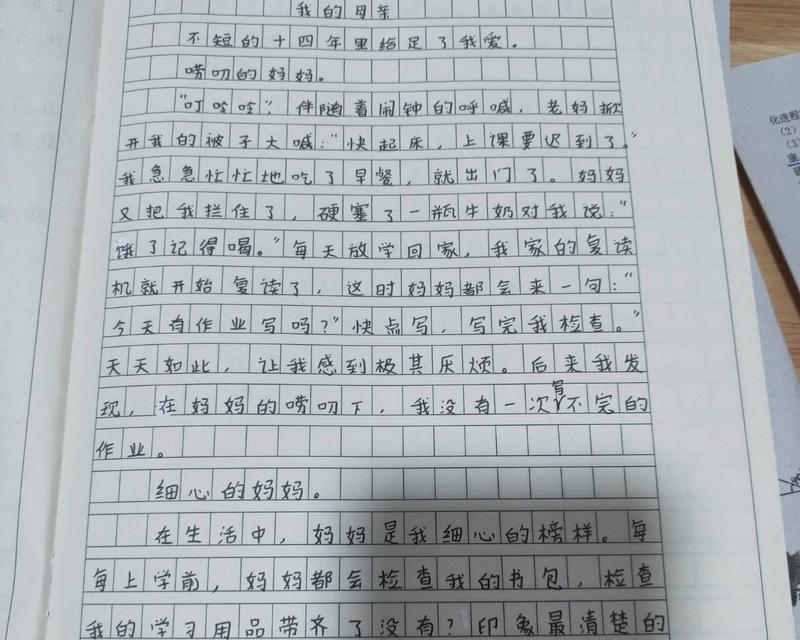 我的母亲
不短的十四年里给足了我爱。
唠叨的妈妈。
"叮呤呤"，伴随着闹钟的呼喊，老妈掀
开我的被子大喊："快起床，上课要迟到了。"
我急急忙忙地吃了早餐，就出门了。妈妈
又把我拦住了，硬塞了一瓶牛奶对我说："
饿了记得喝。"每天放学回家，我家的复读
机就开始复读了，这时妈妈都会来一句："
今天有作业写吗？"快点写，写完我检查。"
天天如此，让我感到极其厌烦。后来我发
现，在妈妈的唠叨下，我没有一次写不完的
作业。
细心的妈妈。
在生活中，妈妈是我细心的榜样。每
每上学前，妈妈都会检查我的书包，检查
我的学习用品带齐了没有？印象最清楚的
化进程
（2）
（3）